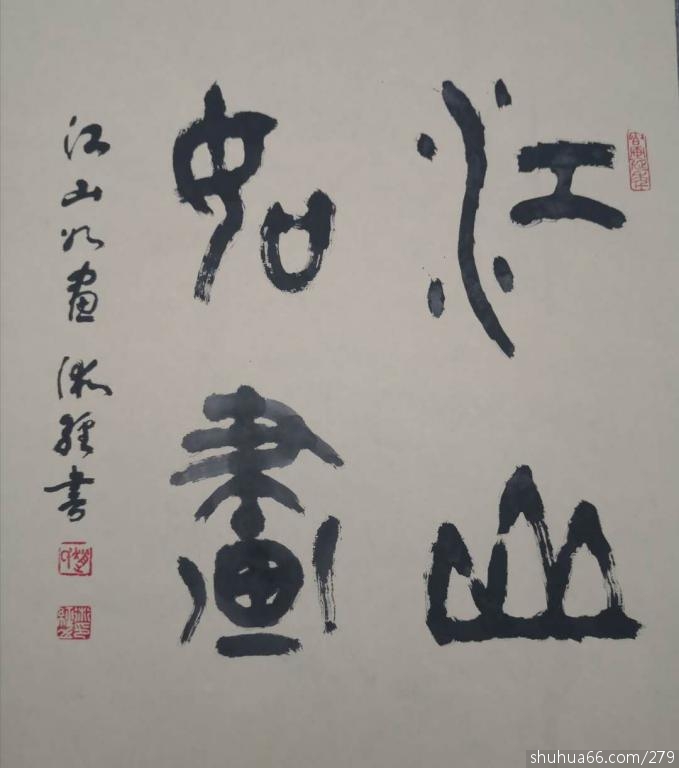 江山
如畫
江山如畫 淑經書
shuhua66.com/279